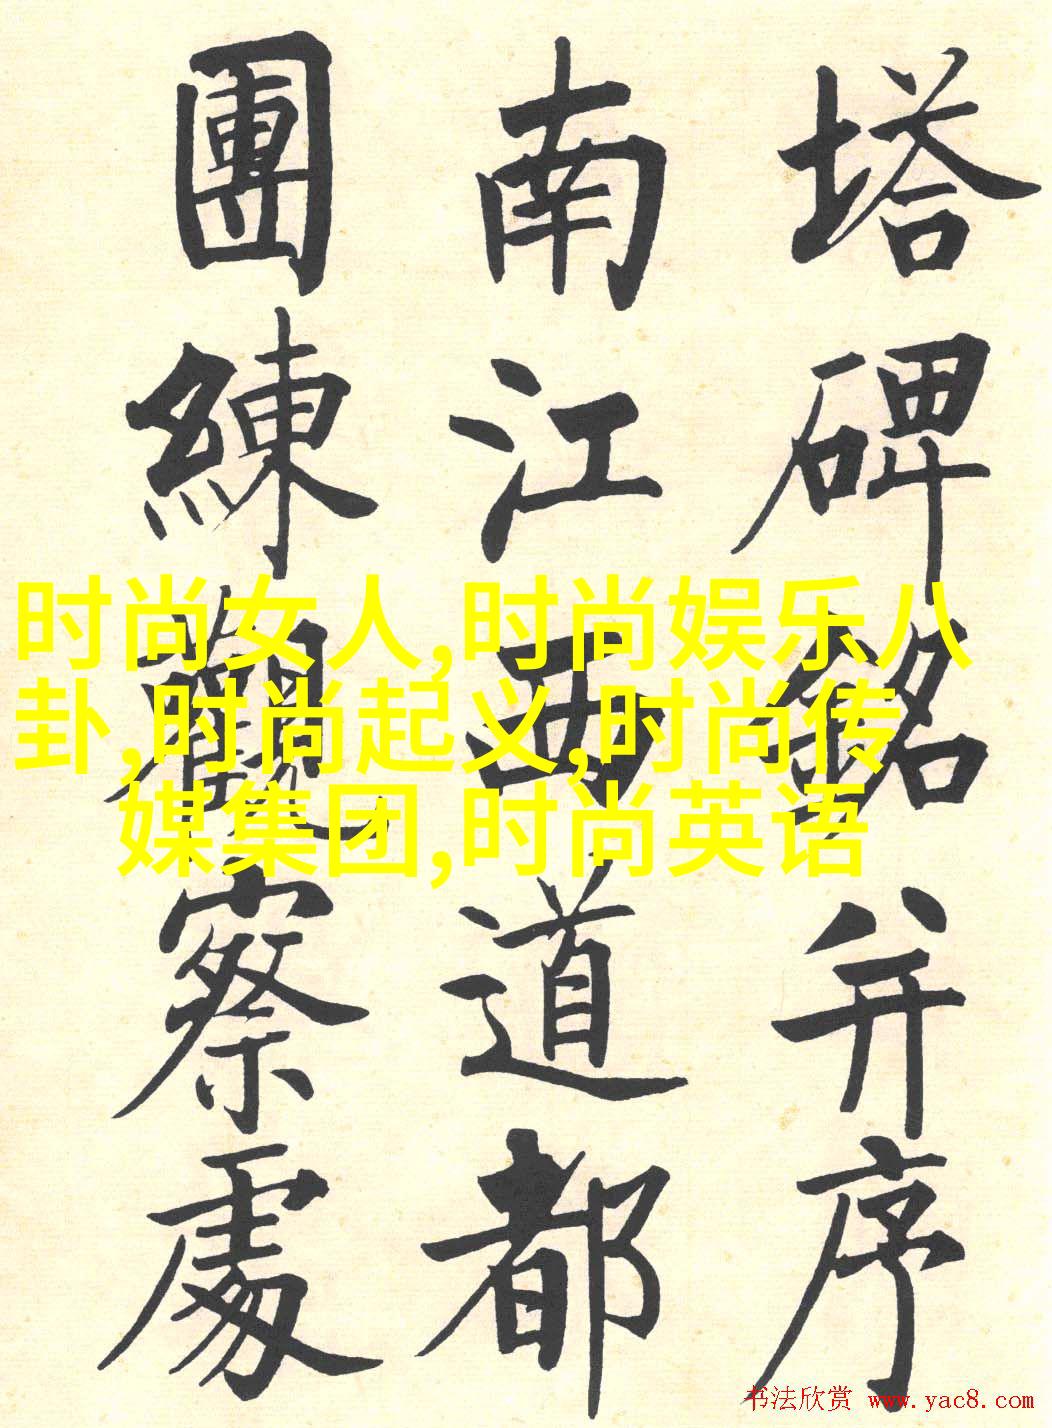 塔碑銘并序
南江西道都
團練觀察處
时尚女人,时尚娱乐八
卦,时尚起义,时尚传
媒集团,时尚英语
书法欣赏 www.yac8.com